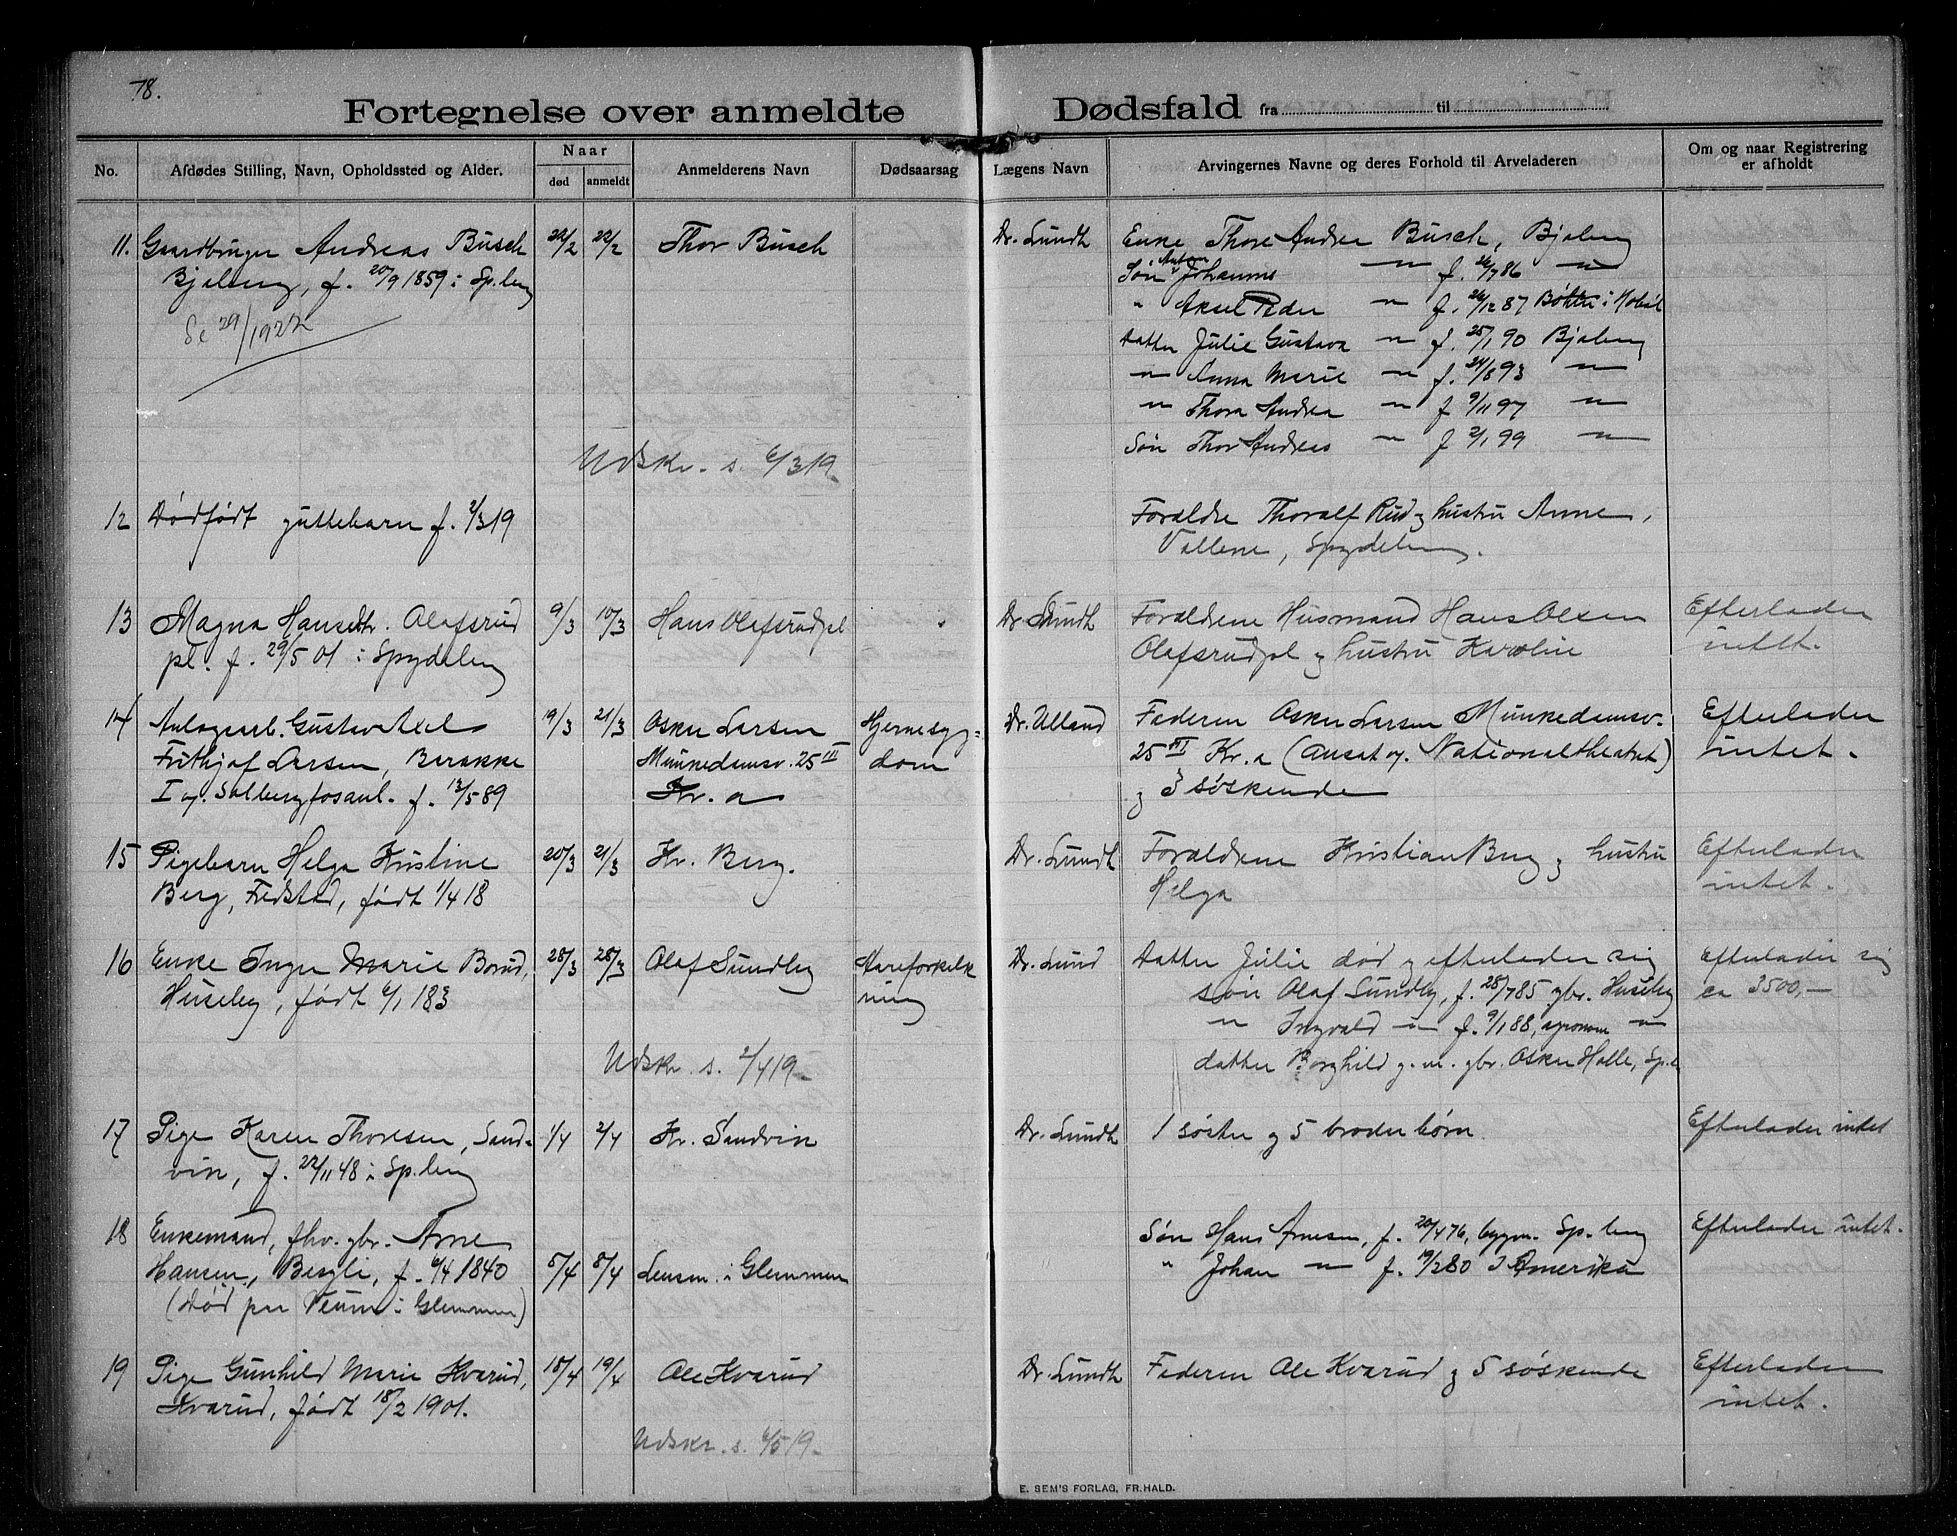 78.
Fortegnelse over anmeldte Dødsfald fra til
No.
Afdødes Stilling, Navn, Opholdssted og Alder.
Naar
død
anmeldt
Anmelderens Navn
Dødsaarsag
Lægens Navn
Arvingernes Navne og deres Forhold til Arveladeren
Om og naar Registrering
er afholdt
11. Gaardbruger Andreas Busch 22/2 22/2 Thor Busch Dr. Lundh Enke Thore Andrea Busch, Bjaberg
Bjaberg, f. 20/9 1859 i Sp.berg
Søn Anton Johannes — f. 26/7 86 —
" Aksel Peder — f. 26/12 87 i Hobøl
Se 29/1922
Datter Julie Gustava — f. 25/1 90 Bjaberg
— Anna Marie — f. 24/8 93 —
— Thora Andrea — f 9/11 97 —
Søn Thor Andreas — f 2/1 99 —
Udskr. s. 6/3 19
12 Dødfødt guttebarn f. 2/3 19 Forældre Thoralf Rud og hustru Anne,
Vallene, Spydeberg.
13 Magna Hansdtr. Olafsrud 9/3 10/3 Hans Olafsrudpl Dr. Lundh Forældrene Husmand Hans Olsen Efterlader
pl. f. 29/5 01 i Spydeberg Olafsrudpl og hustru Karoline intet.
14 Anlægsarb. Gustav Axel 19/3 21/3 Oskar Larsen Hjernesyg= Dr. Ulland Faderen Oskar Larsen Munkedamsv. Efterlader
Frithjof Larsen, Barakke Munkedamsv. 25 III dom 25 III Kr.a (ansat v. Nationaltheatret) intet.
I v. Solbergfosanl. f. 12/5 89 Kr.a og 3 søskende
15 Pigebarn Helga Kristine 20/3 21/3 Kr. Berg. Dr. Lundh Forældrene Kristian Berg og hustru Efterlader
Berg, Fedsted, født 1/4 18 Helga intet.
16 Enke Inger Marie Borud, 28/3 28/3 Olaf Sundby Aareforkalk Dr. Lund Datter Julie død og efterlader sig Efterlader sig
Huseby, født 6/1 183 ning søn Olaf Sundby, f. 28/7 85 gbr. Huseby ca 3500,—
— Ingvald — f. 9/1 88, agronom —
Udskr. s. 2/4 19
datter Borghild g. m. gbr. Oskar Halle, Sp.b
17 Pige Karen Thoresen, Sand= 1/4 2/4 Kr. Sandvin Dr. Lundh 1 søster og 5 broderbørn. Efterlader intet
vin, f. 22/11 48 i Sp.berg
18 Enkemand, fhv. gbr. Arne Søn Hans Arnesen, f. 20/4 76, bygm. Sp.berg Efterlader intet.
Hansen, Bergli, f. 6/4 1840 8/4 8/4 Lensm. i Glemmen " Johan — f. 19/2 80 I Amerika
(Død paa Veum i Glemmen)
19 Pige Gunhild Marie Kvarud, 18/4 19/4 Ole Kvarud Dr. Lundh Faderen Ole Kvarud og 5 søskende Efterlader
Kvarud, født 18/2 1901. intet.
Udskr. s. 6/5 19
E. SEM'S FORLAG, FR.HALD.